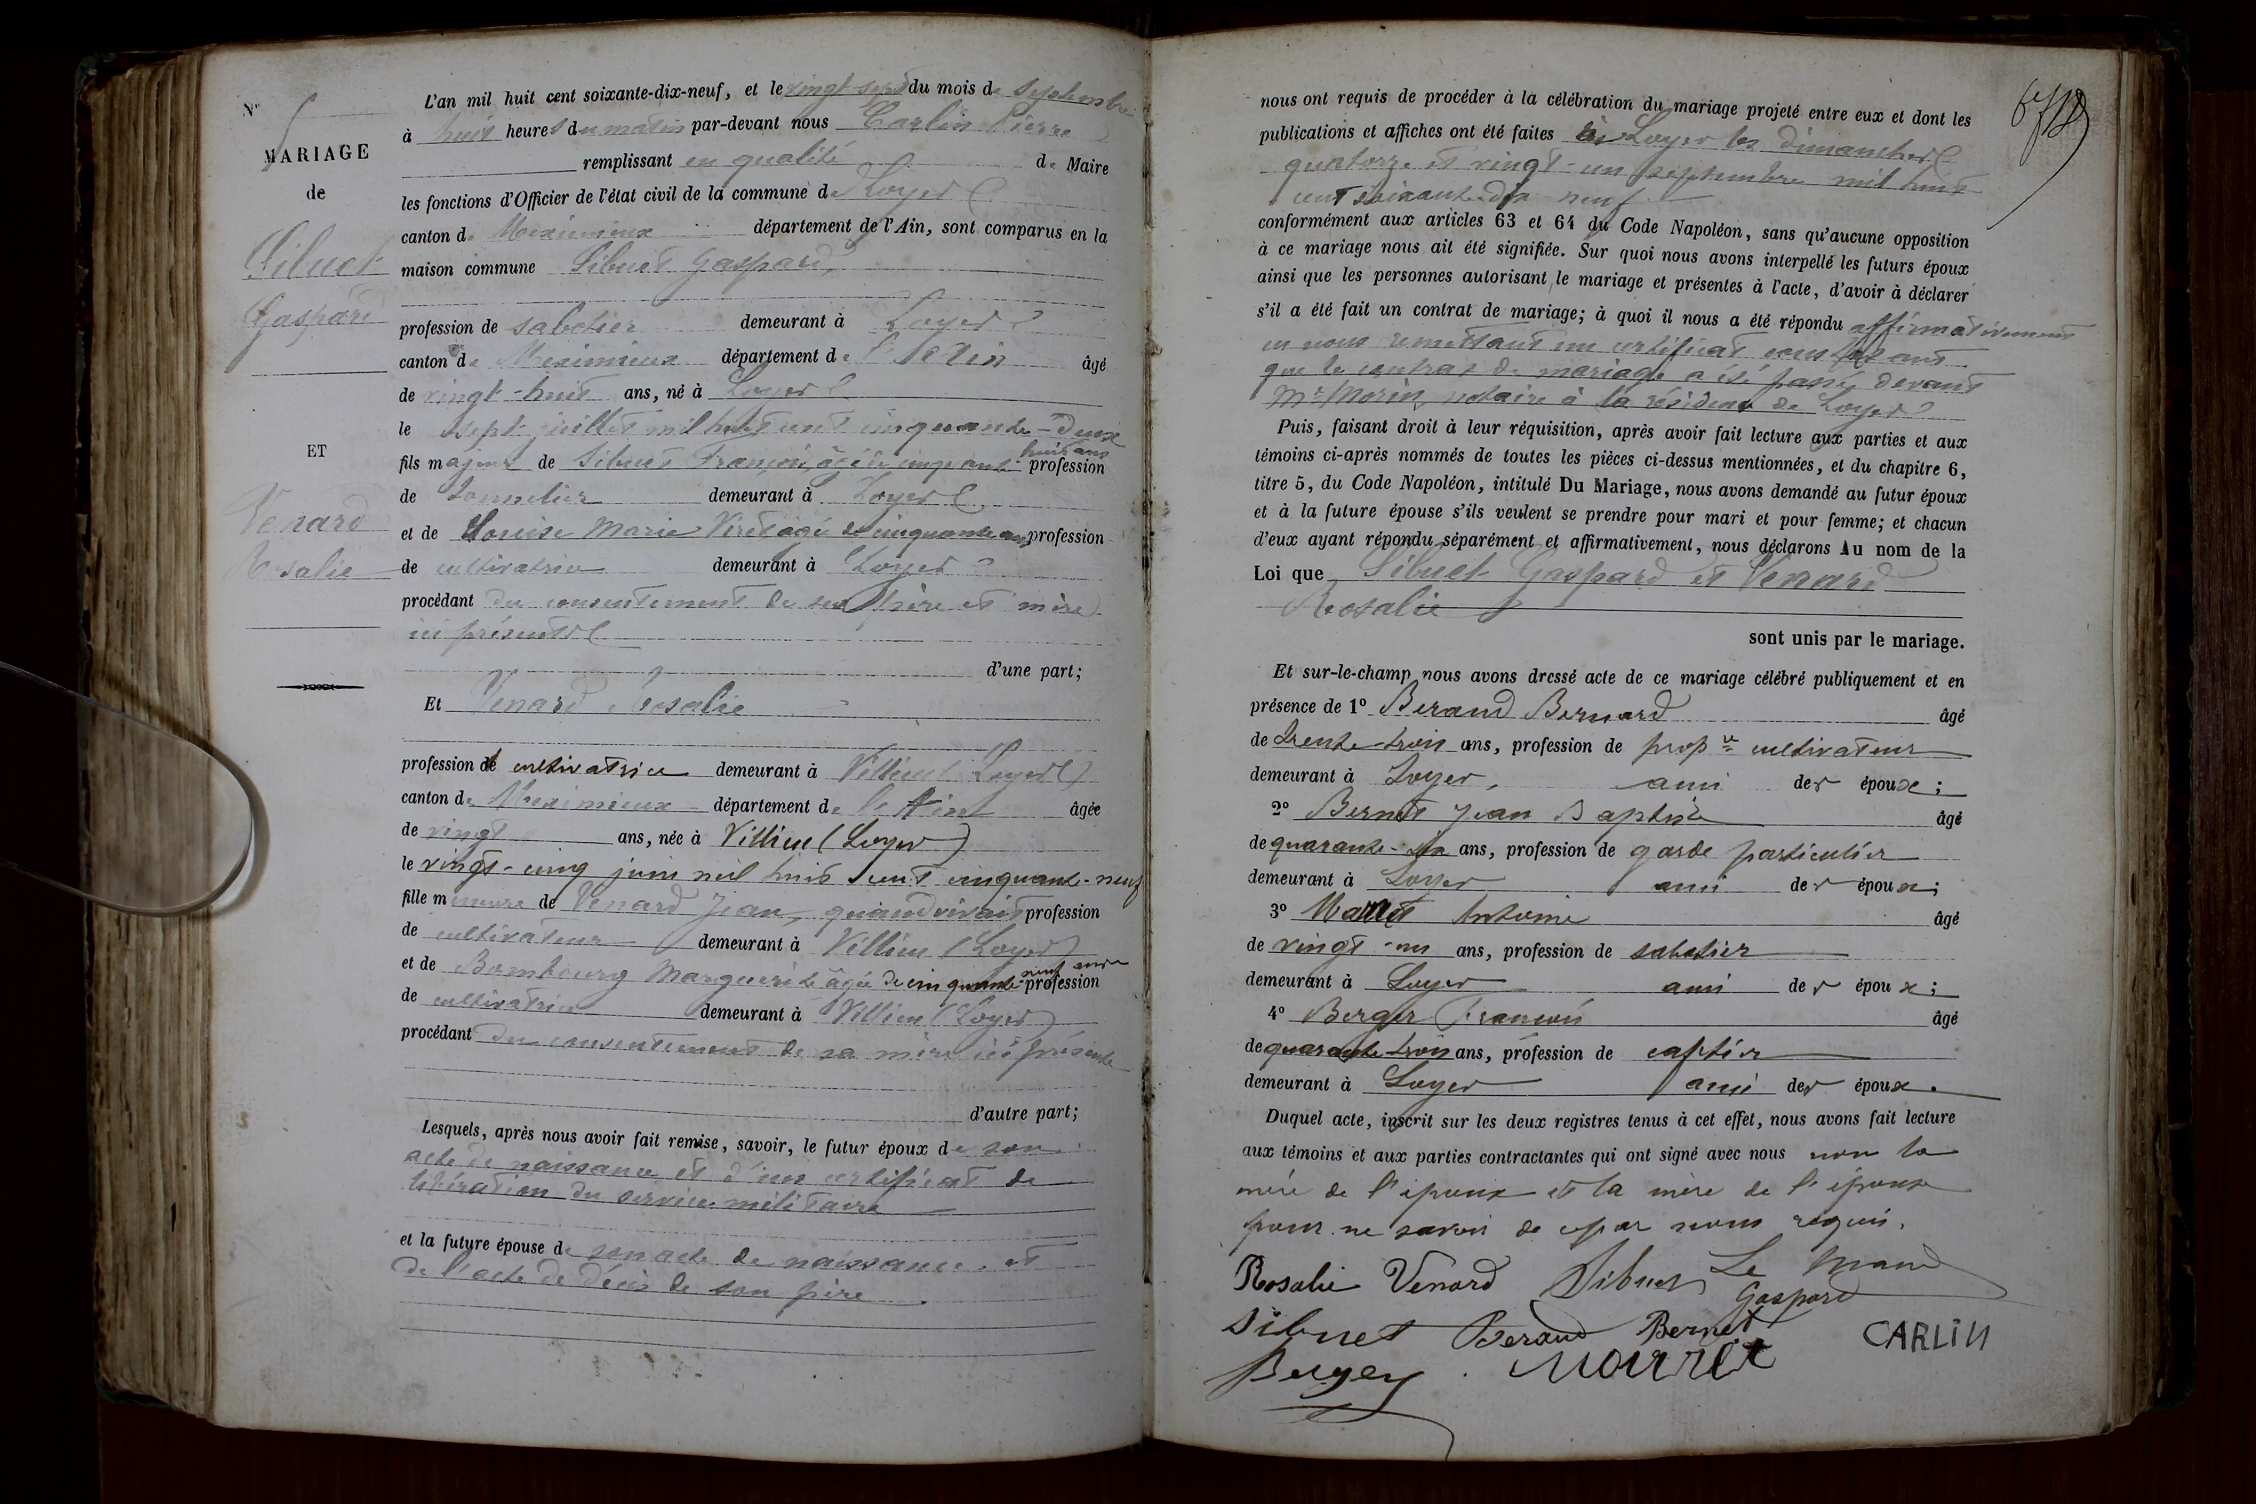 N°
MARIAGE
de
Sibuet
Gaspard
ET
Venard
Rosalie
L'an mil huit cent soixante-dix-neuf, et le vingt sept du mois de septembre
à huit heures du matin par-devant nous Carlin Pierre
remplissant en qualité de Maire
les fonctions d'Officier de l'état civil de la commune de Loyes
canton de Meximieux département de l'Ain, sont comparus en la
maison commune Sibuet Gaspard,
profession de sabotier demeurant à Loyes
canton de Meximieux département de l'Ain âgé
de vingt-huit ans, né à Loyes
le sept juillet mil huit cent cinquante-deux
fils majeur de Sibuet François, âgé de cinquante huit ans profession
de tonnelier demeurant à Loyes
et de Louise Marie Viret âgée de cinquante ans profession
de cultivatrice demeurant à Loyes
procédant du consentement de ses père et mère
ici présents
d'une part;
Et Venard Rosalie
profession de cultivatrice demeurant à Villieu (Loyes)
canton de Meximieux département de l'Ain âgée
de vingt ans, née à Villieu (Loyes)
le vingt-cinq juin mil huit cent cinquante-neuf
fille mineure de Venard Jean, quand vivait profession
de cultivateur demeurant à Villieu (Loyes)
et de Bombourg Marguerite âgée de cinquante-neuf ans profession
de cultivatrice demeurant à Villieu (Loyes)
procédant du consentement de sa mère ici présente
d'autre part;
Lesquels, après nous avoir fait remise, savoir, le futur époux de son
acte de naissance et d'un certificat de
libération du service militaire
et la future épouse de son acte de naissance et
de l'acte de décès de son père
nous ont requis de procéder à la célébration du mariage projeté entre eux et dont les
publications et affiches ont été faites à Loyes les dimanches
quatorze et vingt-un septembre mil huit
cent soixante dix neuf
conformément aux articles 63 et 64 du Code Napoléon, sans qu'aucune opposition
à ce mariage nous ait été signifiée. Sur quoi nous avons interpellé les futurs époux
ainsi que les personnes autorisant le mariage et présentes à l'acte, d'avoir à déclarer
s'il a été fait un contrat de mariage; à quoi il nous a été répondu affirmativement
en nous remettant un certificat constatant
que le contrat de mariage a été passé devant
Mr Morin, notaire à la résidence de Loyes
Puis, faisant droit à leur réquisition, après avoir fait lecture aux parties et aux
témoins ci-après nommés de toutes les pièces ci-dessus mentionnées, et du chapitre 6,
titre 5, du Code Napoléon, intitulé Du Mariage, nous avons demandé au futur époux
et à la future épouse s'ils veulent se prendre pour mari et pour femme; et chacun
d'eux ayant répondu séparément et affirmativement, nous déclarons Au nom de la
Loi que Sibuet Gaspard et Venard
Rosalie
sont unis par le mariage.
Et sur-le-champ nous avons dressé acte de ce mariage célébré publiquement et en
présence de 1° Beraud Bernard âgé
de trente-trois ans, profession de propre cultivateur
demeurant à Loyes, ami des époux;
2° Bernet Jean Baptiste âgé
de quarante-six ans, profession de garde particulier
demeurant à Loyes ami des époux;
3° Antoine âgé
de vingt-un ans, profession de sabotier
demeurant à Loyes ami des époux;
4° Berger François âgé
de quarante-trois ans, profession de
demeurant à Loyes ami des époux.
Duquel acte, inscrit sur les deux registres tenus à cet effet, nous avons fait lecture
aux témoins et aux parties contractantes qui ont signé avec nous non la
mère de l'époux et la mère de l'épouse
pour ne savoir de ce par nous requis.
Rosalie Venard Sibuet Le Maire
Gaspard
Sibuet Beraud Bernet CARLIN
Berger Mourret